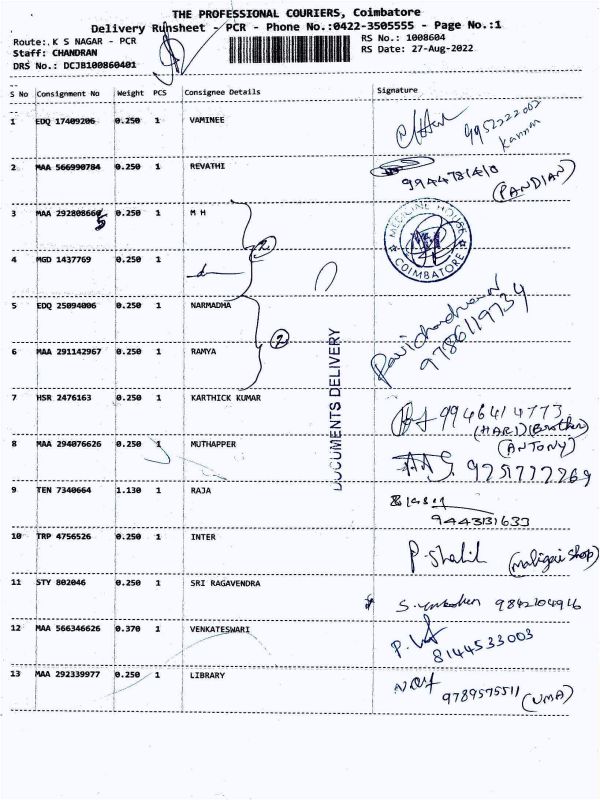 THE PROFESSIONAL COURIERS, Coimbatore
Delivery Runsheet - PCR - Phone No.:0422-3505555 - Page No.:1
Route:. K S NAGAR - PCR RS No.: 1008604
Staff: CHANDRAN RS Date: 27-Aug-2022
DRS No.: DCJB100860401
S No Consignment No Weight PCS Consignee Details Signature
1 EDQ 17409206 0.250 1 VAMINEE 9952222002
Kannan
2 MAA 566990784 0.250 1 REVATHI 9944781410
(PANDIAN)
3 MAA 292808660 0.250 1 M H
5
MEDICINE HOUSE
COIMBATORE
2
4 MGD 1437769 0.250 1
5 EDQ 25094006 0.250 1 NARMADHA
Ravichandran
9786119734
2
6 MAA 291142967 0.250 1 RAMYA
DOCUMENTS DELIVERY
7 HSR 2476163 0.250 1 KARTHICK KUMAR 9946414773
(HARI) (Brother)
8 MAA 294076626 0.250 1 MUTHAPPER (ANTONY)
9 TEN 7340664 1.130 1 RAJA
9443131633
10 TRP 4756526 0.250 1 INTER P. Shalil (maligai shop)
11 STY 802046 0.250 1 SRI RAGAVENDRA 9842104916
12 MAA 566346626 0.370 1 VENKATESWARI
8144533003
13 MAA 292339977 0.250 1 LIBRARY
9789575511 (UMA)